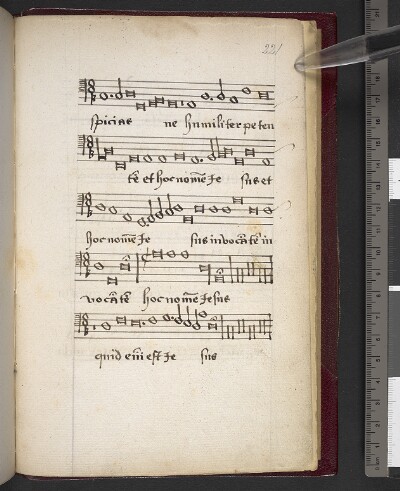 221
spicias ne humiliter peten
tē et hoc nomē Je sus et
hoc nomē Je sus invocātē in
vocātē hoc nomē Jesus
quid eīn est Je sus